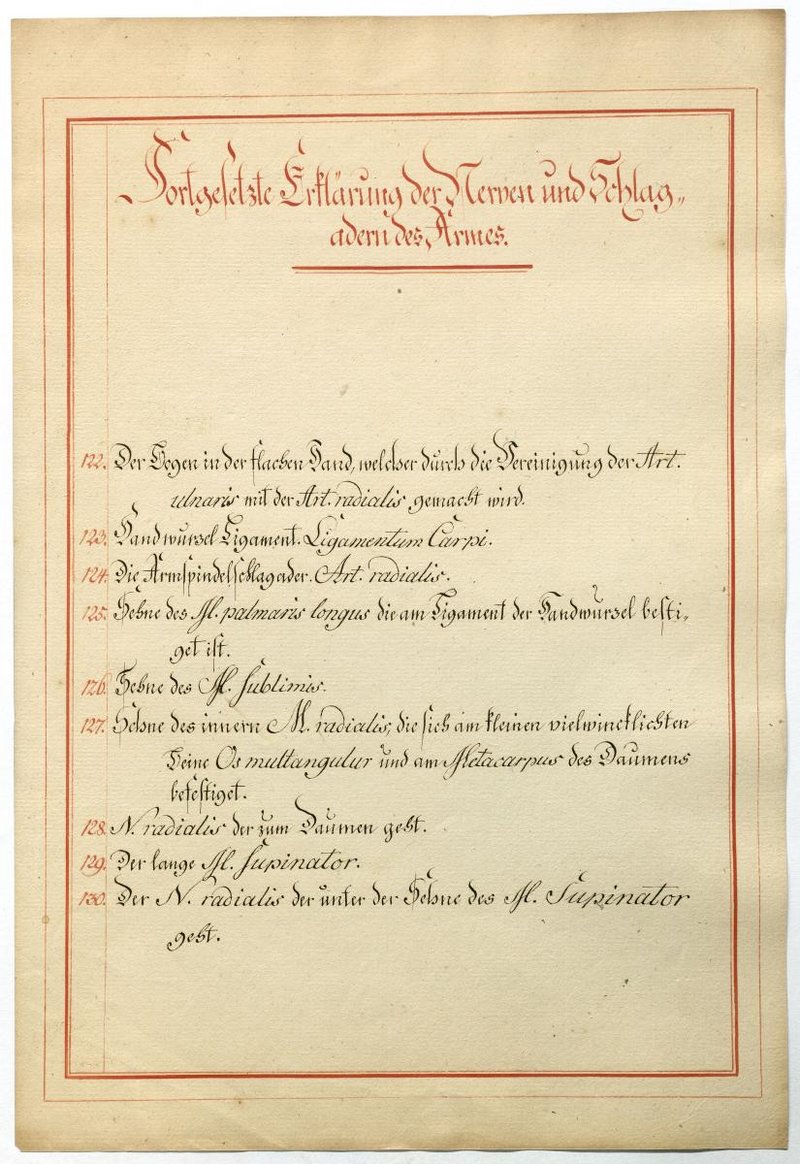 Fortgesetzte Erklärung der Nerven und Schlag„
adern des Armes.
122. Der Bogen in der flachen Hand, welcher durch die Vereinigung der Art.
ulnaris mit der Art. radialis gemacht wird.
123. Handwurzel Ligament. Ligamentum Carpi.
124. Die Armspindelschlagader. Art. radialis.
125. Sehne des M. palmaris longus die am Ligament der Handwurzel befesti„
get ist.
126. Sehne des M. Sublimis.
127. Sehne des innern M. radialis, die sich am kleinen vielwincklichten
Beine Os multangulur und am Metacarpus des Daumens
befestiget.
128. N. radialis der zum Daumen geht.
129. Der lange M. Supinator.
130. Der N. radialis der unter der Sehne des M. Supinator
geht.